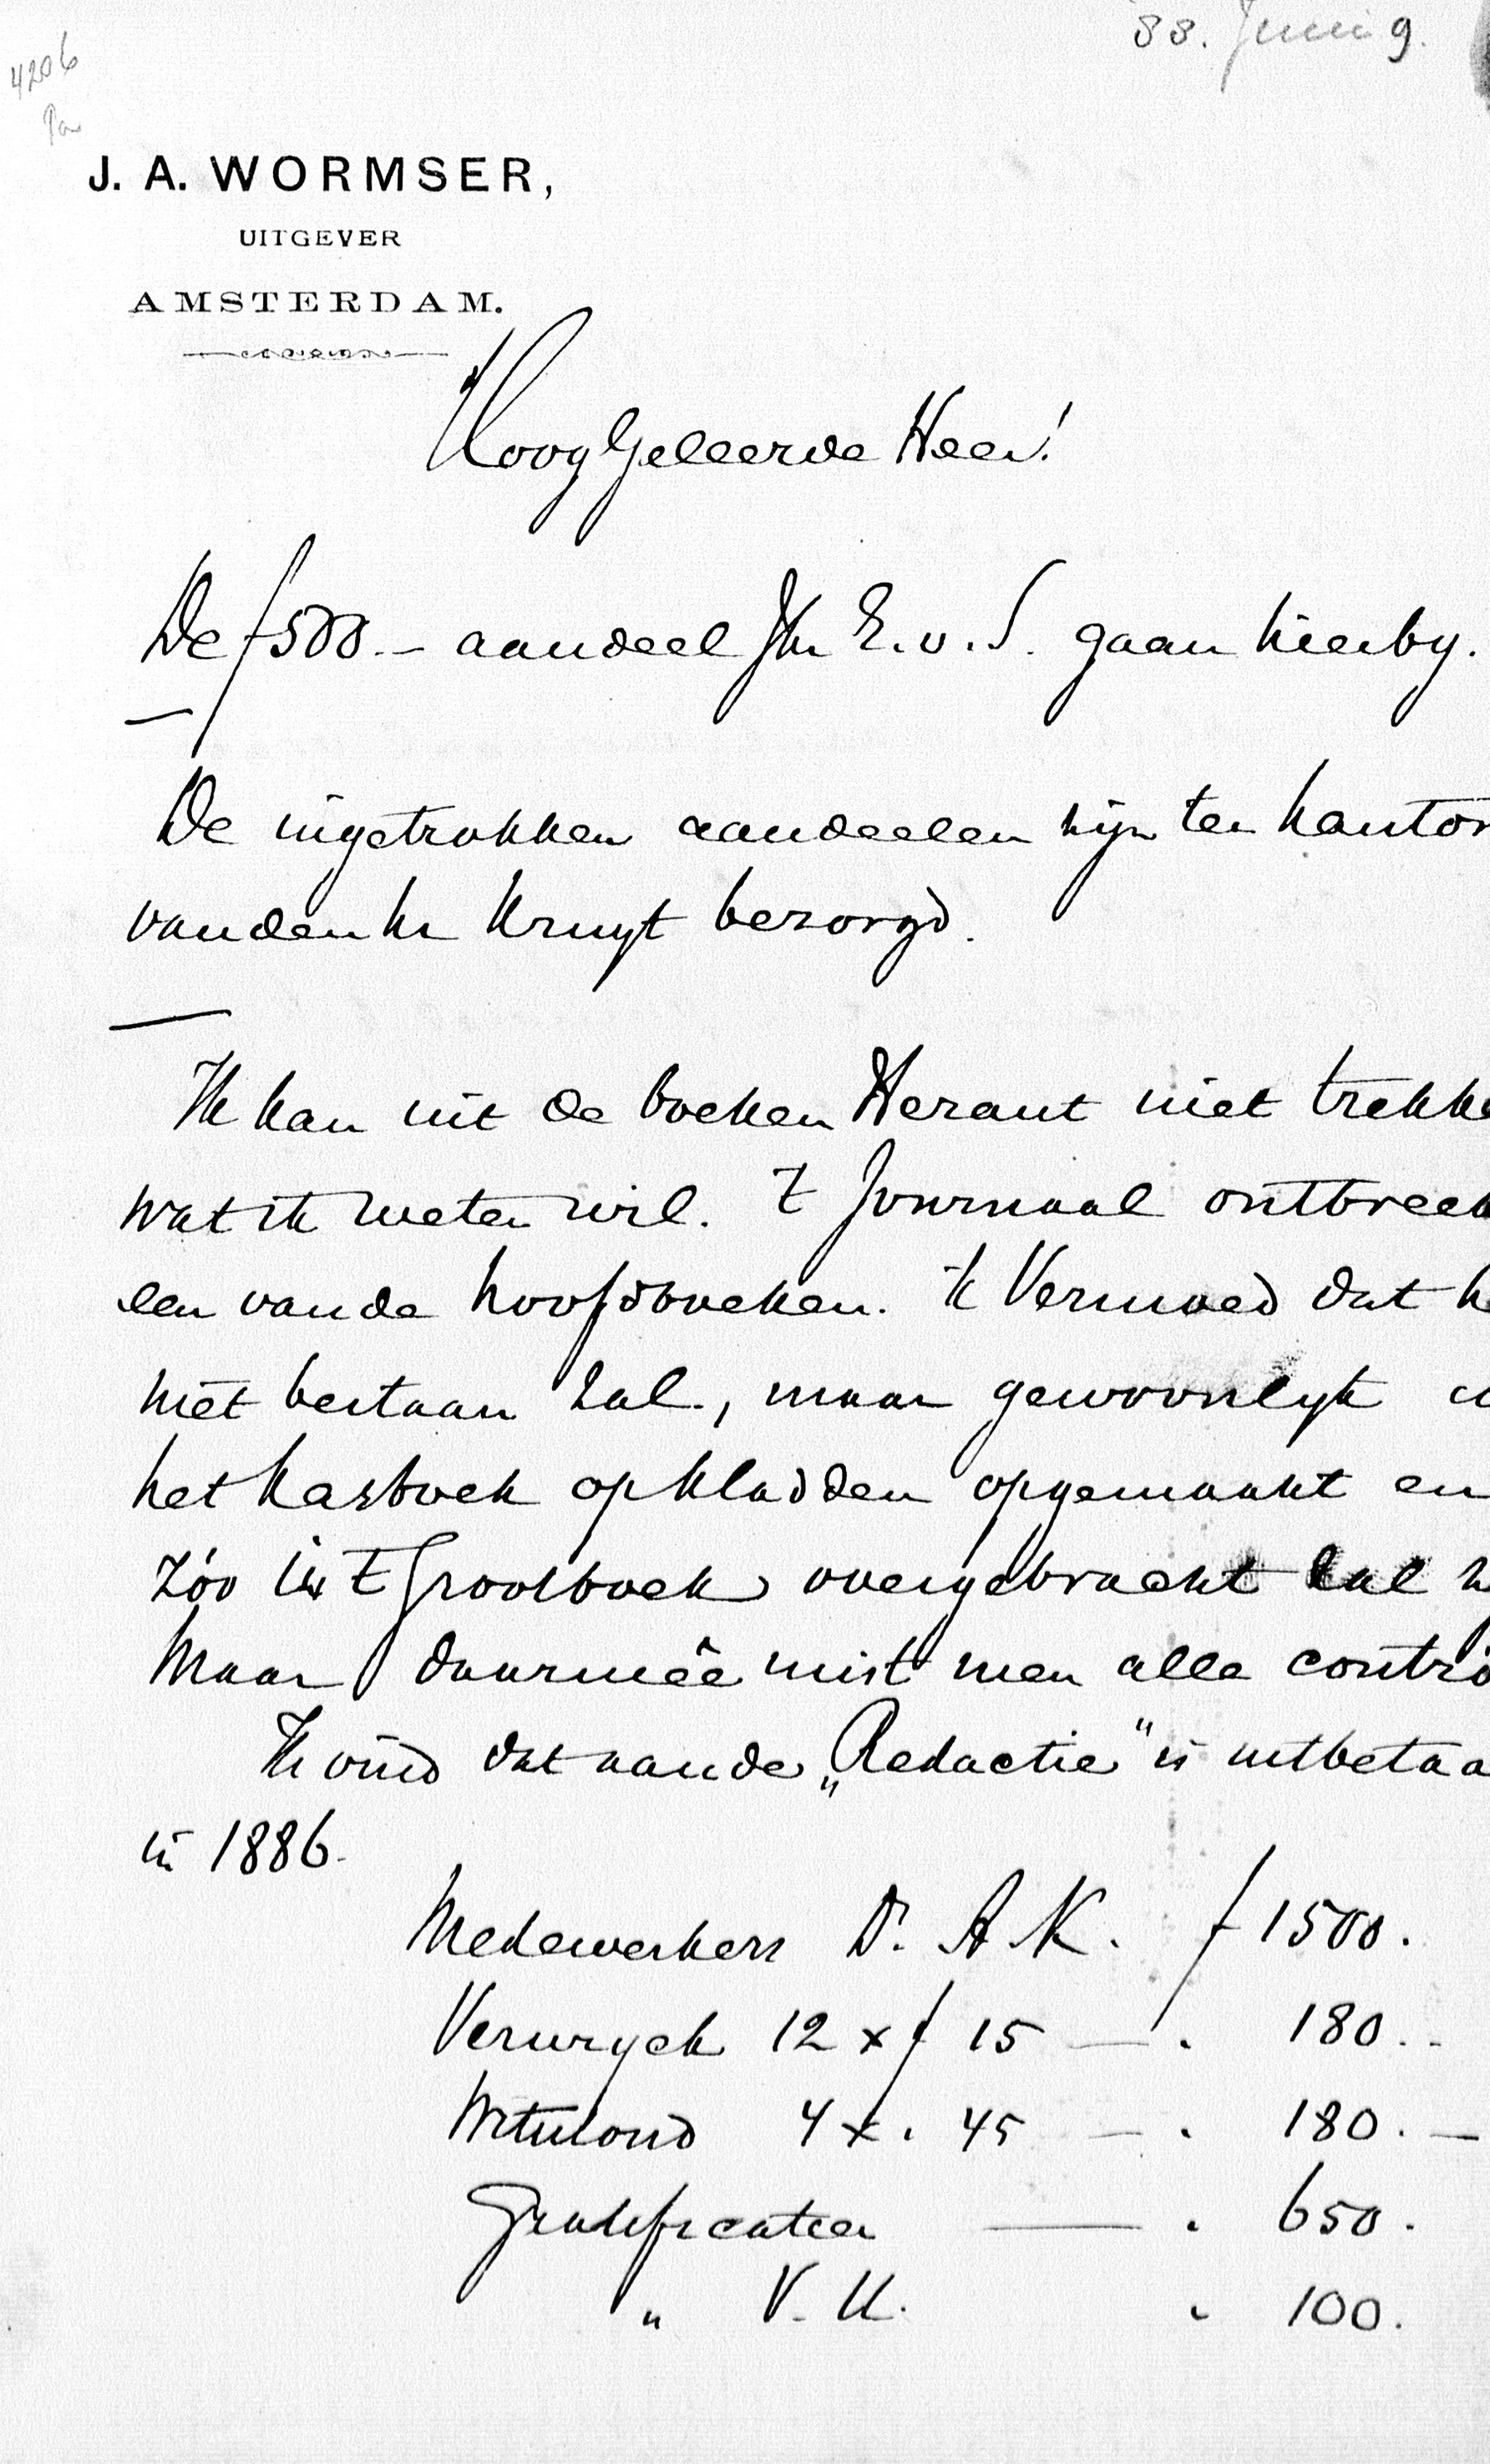 88. Juni 9.
4206
J. A. WORMSER,
UITGEVER
AMSTERDAM.
HoogGeleerde Heer!
De f 500.— aandeel Jhr E. v. S. gaan hierby.
De ingetrokken aandeelen zijn ten kantor
van den hr Kruyt bezorgd.
Ik kan uit de boeken Heraut niet trekke
wat ik weten wil. 't Journaal ontbreek
een van de hoofdboeken. ik Vermoed dat he
niet bestaan zal, maar gewoonlyk
het kasboek op kladden opgemaakt en
zóó in 't Grootboek overgebracht zal
Maar daarmêe mist men alle contrô
Ik vind dat aan de „Redactie" is uitbetaa
in 1886.
Medewerkers Dr. A K. f 1500.
Verwryck 12 x f 15 — . 180..
Witmond 4 x . 45 — . 180. —
Gratificatien — . 650.
" V. K. . 100.